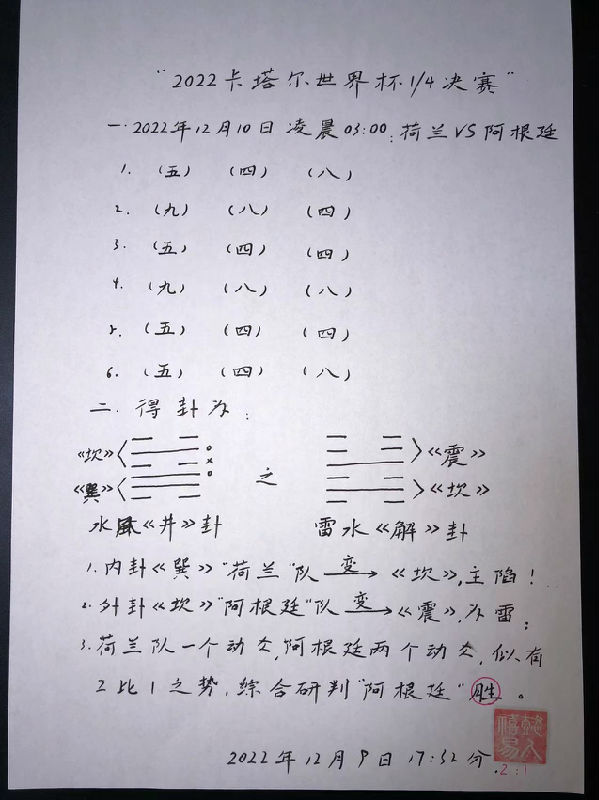 "2022卡塔尔世界杯1/4决赛"
一.2022年12月10日凌晨03:00:荷兰VS阿根廷
1. (五) (四) (八)
2. (九) (八) (四)
3. (五) (四) (四)
4. (九) (八) (八)
5. (五) (四) (四)
6. (五) (四) (八)
二.得卦为:
《坎》 《震》
《巽》 之 《坎》
水風《井》卦 雷水《解》卦
1.内卦《巽》"荷兰"队 变→ 《坎》,主陷!
2.外卦《坎》"阿根廷"队 变→ 《震》,为雷;
3.荷兰队一个动爻,阿根廷两个动爻,似有
2比1之势,综合研判"阿根廷"胜。
2022年12月9日17:32分.
2:1